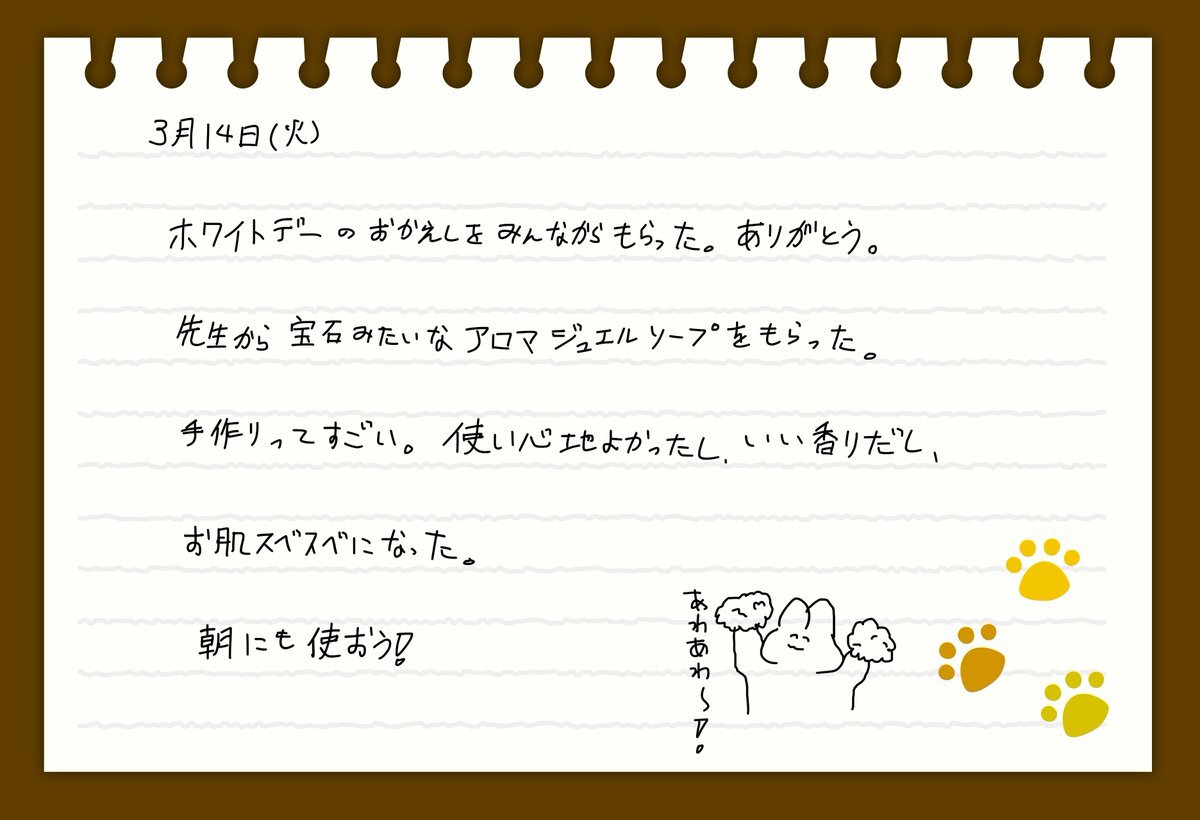 3月14日(火)
ホワイトデーのおかえしをみんながらもらった。ありがとう。
先生から宝石みたいなアロマジュエルソープをもらった。
手作りってすごい。使い心地よかったし、いい香りだし、
お肌スベスベになった。
朝にも使おう!
あわあわ〜!